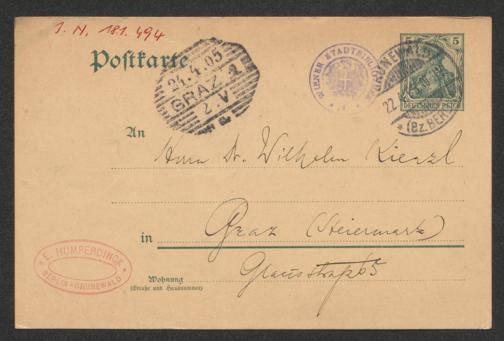 I. N. 181.494
Postkarte
24.4.05
GRAZ 2
2.V
WIENER STADTBIBLIOTHEK
GRUNEWALD
22.
(Bz. BERLIN)
5 5
DEUTSCHES REICH
An
Herrn Dr. Wilhelm Kienzl
in
Graz (Steiermark)
Wohnung
(Straße und Hausnummer)
E. HUMPERDINCK
BERLIN-GRUNEWALD